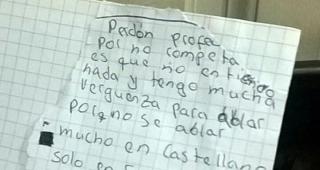 Perdón profe
por no competa
es que no entiendo
nada y tengo mucha
verguenza para ablar
porq no se ablar
mucho en castellano
solo en